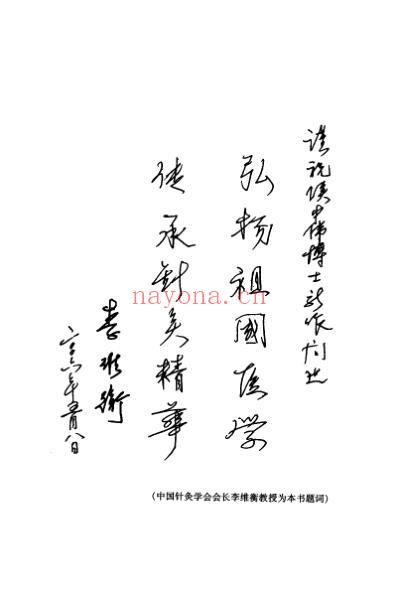 谨祝侯中伟博士新作问世
弘扬祖國医学
传承針灸精華
李维衡
二〇〇六年五月八日
nayona.cn
(中国针灸学会会长李维衡教授为本书题词)